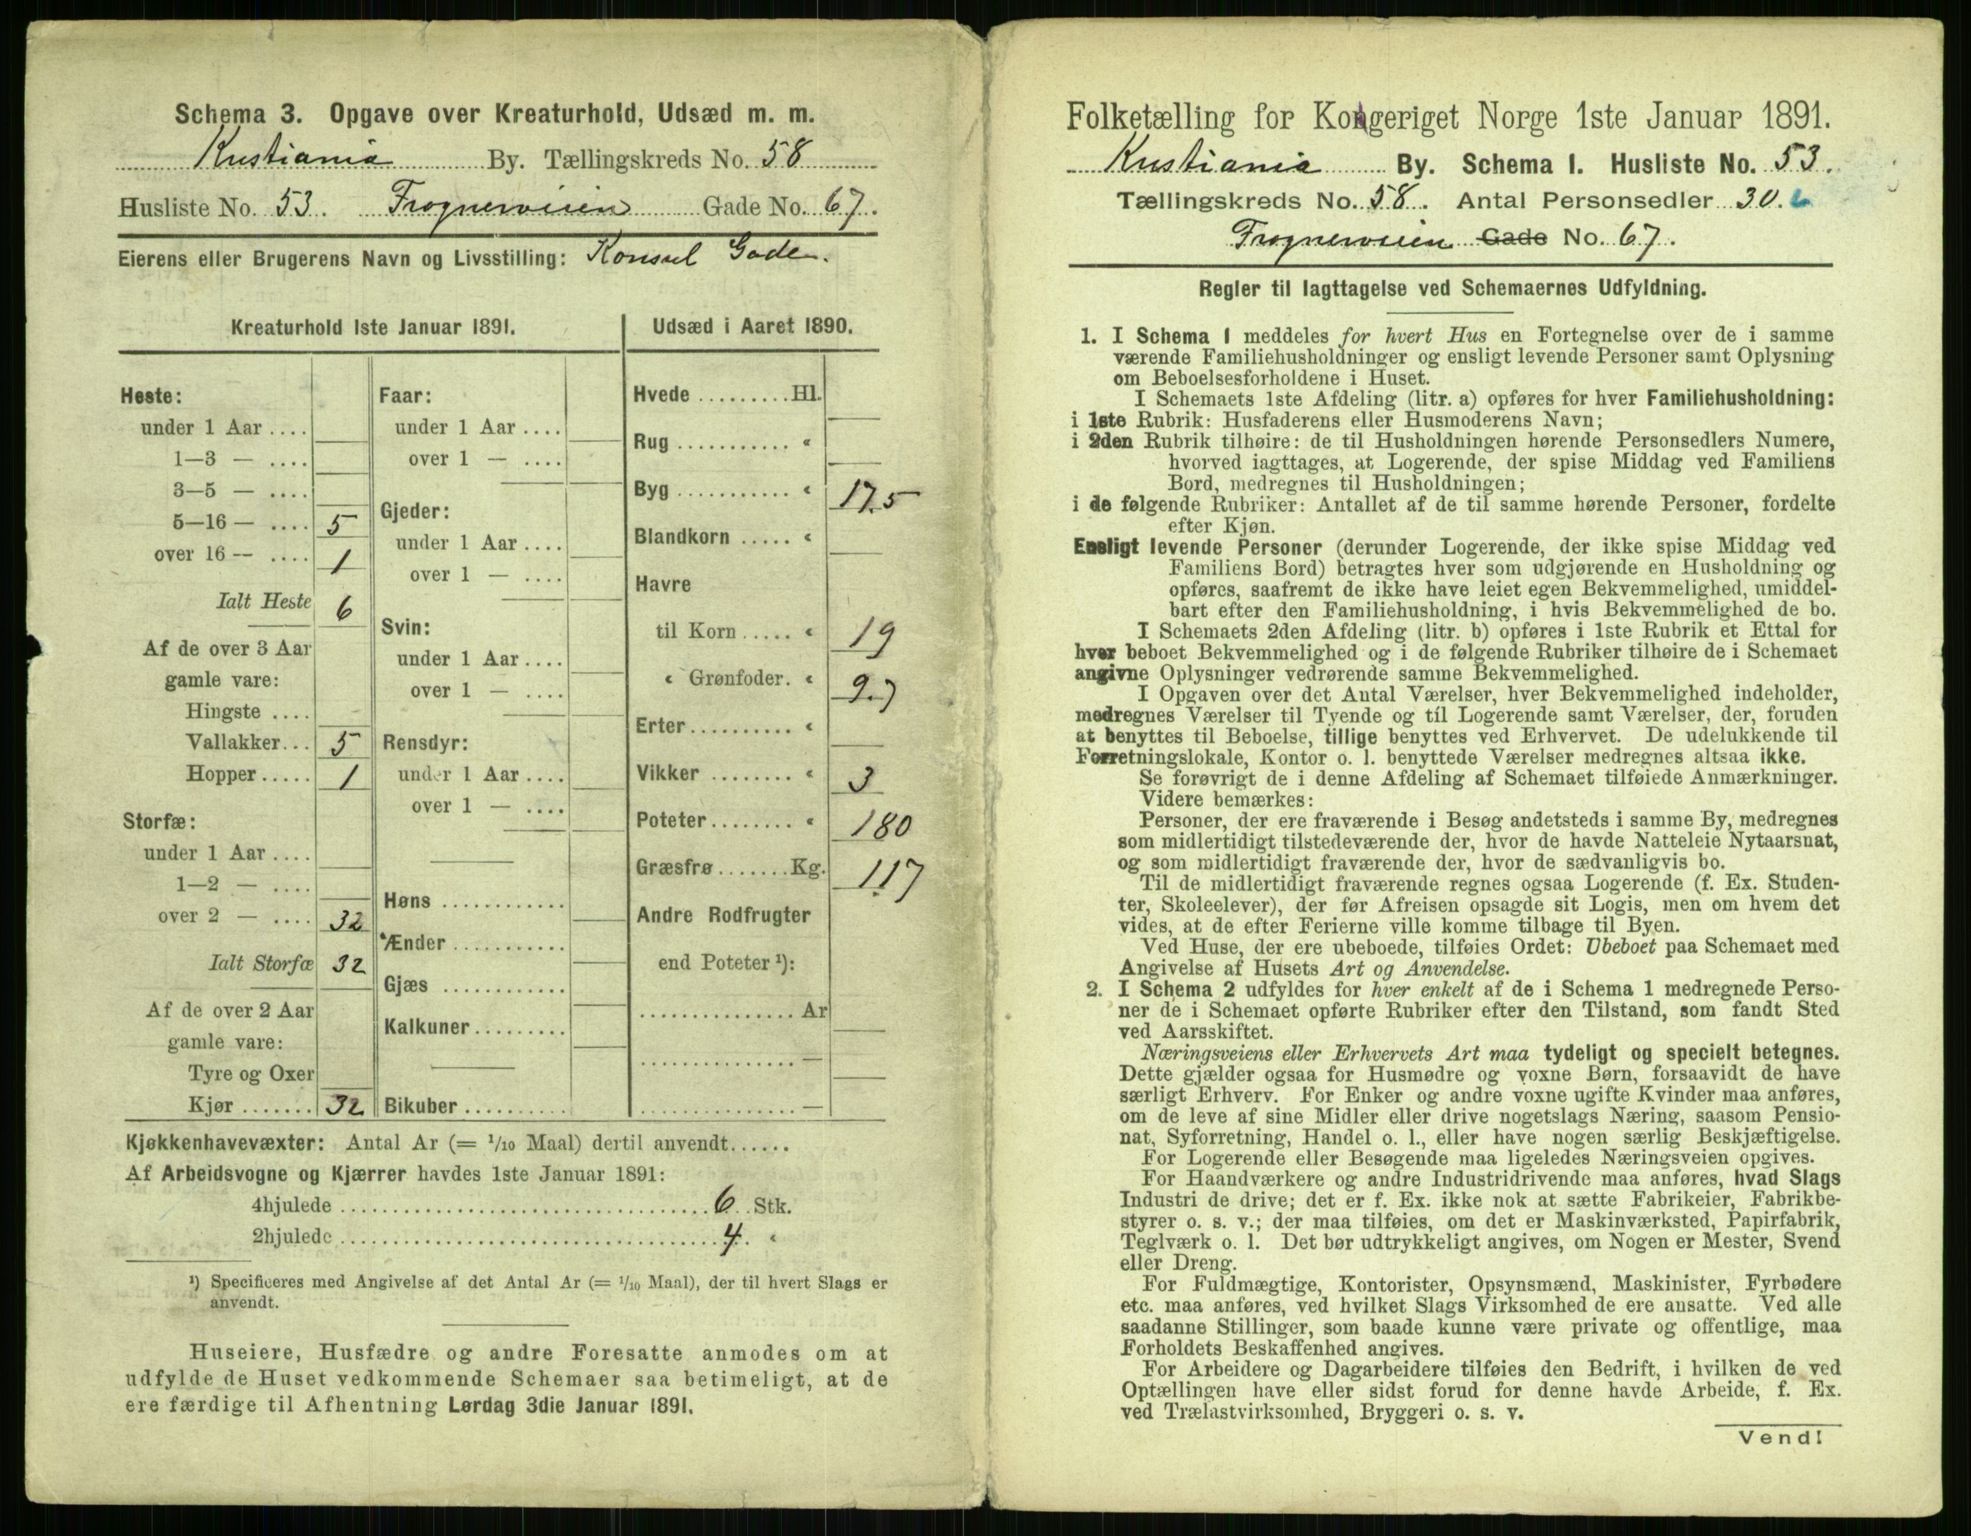 Schema 3. Opgave over Kreaturhold, Udsæd m. m.
Kristiania By. Tællingskreds No. 58
Husliste No. 53. Frognerveien Gade No. 67.
Eierens eller Brugerens Navn og Livsstilling: Konsul Gade.
Kreaturhold 1ste Januar 1891.
Heste:
under 1 Aar ....
1—3 — ....
3—5 — ....
5—16 — .... 5
over 16 — .... 1
Ialt Heste 6
Af de over 3 Aar
gamle vare:
Hingste ....
Vallakker... 5
Hopper..... 1
Storfæ:
under 1 Aar ....
1—2 — ....
over 2 — .... 32
Ialt Storfæ 32
Af de over 2 Aar
gamle vare:
Tyre og Oxer
Kjør ....... 32
Faar:
under 1 Aar ....
over 1 — ....
Gjeder:
under 1 Aar ....
over 1 — ....
Svin:
under 1 Aar ....
over 1 — ....
Rensdyr:
under 1 Aar ....
over 1 — ....
Høns ............
Ænder ...........
Gjæs ............
Kalkuner.........
Bikuber ..........
Udsæd i Aaret 1890.
Hvede ......... Hl.
Rug ........... «
Byg ........... « 17.5
Blandkorn ..... «
Havre
til Korn ..... « 19
« Grønfoder. « 9.7
Erter .......... «
Vikker ........ « 3
Poteter ........ « 180
Græsfrø ....... Kg. 117
Andre Rodfrugter
end Poteter ¹):
............... Ar
............... —
............... —
Kjøkkenhavevæxter: Antal Ar (= 1/10 Maal) dertil anvendt......
Af Arbeidsvogne og Kjærrer havdes 1ste Januar 1891:
4hjulede .................... 6 Stk.
2hjulede .................... 4 «
¹) Specificeres med Angivelse af det Antal Ar (= 1/10 Maal), der til hvert Slags er
anvendt.
Huseiere, Husfædre og andre Foresatte anmodes om at
udfylde de Huset vedkommende Schemaer saa betimeligt, at de
ere færdige til Afhentning Lørdag 3die Januar 1891.
Folketælling for Kongeriget Norge 1ste Januar 1891.
Kristiania By. Schema I. Husliste No. 53.
Tællingskreds No. 58. Antal Personsedler 30. 6
Frognerveien Gade No. 67.
Regler til Iagttagelse ved Schemaernes Udfyldning.
1. I Schema 1 meddeles for hvert Hus en Fortegnelse over de i samme
værende Familiehusholdninger og ensligt levende Personer samt Oplysning
om Beboelsesforholdene i Huset.
I Schemaets 1ste Afdeling (litr. a) opføres for hver Familiehusholdning:
i 1ste Rubrik: Husfaderens eller Husmoderens Navn;
i 2den Rubrik tilhøire: de til Husholdningen hørende Personsedlers Numere,
hvorved iagttages, at Logerende, der spise Middag ved Familiens
Bord, medregnes til Husholdningen;
i de følgende Rubriker: Antallet af de til samme hørende Personer, fordelte
efter Kjøn.
Ensligt levende Personer (derunder Logerende, der ikke spise Middag ved
Familiens Bord) betragtes hver som udgjørende en Husholdning og
opføres, saafremt de ikke have leiet egen Bekvemmelighed, umiddel-
bart efter den Familiehusholdning, i hvis Bekvemmelighed de bo.
I Schemaets 2den Afdeling (litr. b) opføres i 1ste Rubrik et Ettal for
hver beboet Bekvemmelighed og i de følgende Rubriker tilhøire de i Schemaet
angivne Oplysninger vedrørende samme Bekvemmelighed.
I Opgaven over det Antal Værelser, hver Bekvemmelighed indeholder,
medregnes Værelser til Tyende og til Logerende samt Værelser, der, foruden
at benyttes til Beboelse, tillige benyttes ved Erhvervet. De udelukkende til
Forretningslokale, Kontor o. l. benyttede Værelser medregnes altsaa ikke.
Se forøvrigt de i denne Afdeling af Schemaet tilføiede Anmærkninger.
Videre bemærkes:
Personer, der ere fraværende i Besøg andetsteds i samme By, medregnes
som midlertidigt tilstedeværende der, hvor de havde Natteleie Nytaarsnat,
og som midlertidigt fraværende der, hvor de sædvanligvis bo.
Til de midlertidigt fraværende regnes ogsaa Logerende (f. Ex. Studen-
ter, Skoleelever), der før Afreisen opsagde sit Logis, men om hvem det
vides, at de efter Ferierne ville komme tilbage til Byen.
Ved Huse, der ere ubeboede, tilføies Ordet: Ubeboet paa Schemaet med
Angivelse af Husets Art og Anvendelse.
2. I Schema 2 udfyldes for hver enkelt af de i Schema 1 medregnede Perso-
ner de i Schemaet opførte Rubriker efter den Tilstand, som fandt Sted
ved Aarsskiftet.
Næringsveiens eller Erhvervets Art maa tydeligt og specielt betegnes.
Dette gjælder ogsaa for Husmødre og voxne Børn, forsaavidt de have
særligt Erhverv. For Enker og andre voxne ugifte Kvinder maa anføres,
om de leve af sine Midler eller drive nogetslags Næring, saasom Pensio-
nat, Syforretning, Handel o. l., eller have nogen særlig Beskjæftigelse.
For Logerende eller Besøgende maa ligeledes Næringsveien opgives.
For Haandværkere og andre Industridrivende maa anføres, hvad Slags
Industri de drive; det er f. Ex. ikke nok at sætte Fabrikeier, Fabrikbe-
styrer o. s. v.; der maa tilføies, om det er Maskinværksted, Papirfabrik,
Teglværk o. l. Det bør udtrykkeligt angives, om Nogen er Mester, Svend
eller Dreng.
For Fuldmægtige, Kontorister, Opsynsmænd, Maskinister, Fyrbødere
etc. maa anføres, ved hvilket Slags Virksomhed de ere ansatte. Ved alle
saadanne Stillinger, som baade kunne være private og offentlige, maa
Forholdets Beskaffenhed angives.
For Arbeidere og Dagarbeidere tilføies den Bedrift, i hvilken de ved
Optællingen have eller sidst forud for denne havde Arbeide, f. Ex.
ved Trælastvirksomhed, Bryggeri o. s. v.
Vend!